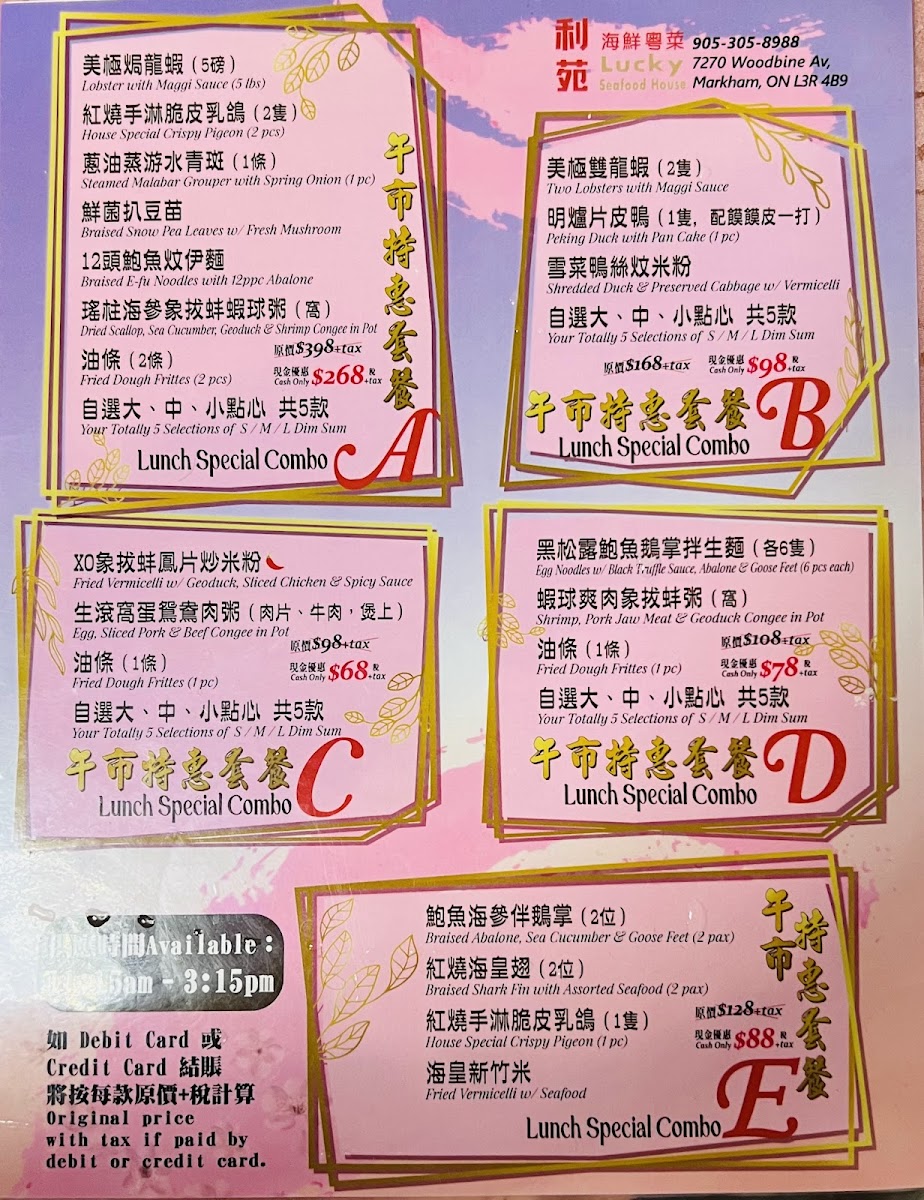 利苑 海鮮粵菜
Lucky
Seafood House
905-305-8988
7270 Woodbine Av,
Markham, ON L3R 4B9
美極焗龍蝦（5磅）
Lobster with Maggi Sauce (5 lbs)
紅燒手淋脆皮乳鴿（2隻）
House Special Crispy Pigeon (2 pcs)
蔥油蒸游水青斑（1條）
Steamed Malabar Grouper with Spring Onion (1 pc)
鮮菌扒豆苗
Braised Snow Pea Leaves w/ Fresh Mushroom
12頭鮑魚炆伊麵
Braised E-fu Noodles with 12ppc Abalone
瑤柱海參象拔蚌蝦球粥（窩）
Dried Scallop, Sea Cucumber, Geoduck & Shrimp Congee in Pot
油條（2條）
Fried Dough Frittes (2 pcs)
原價$398+tax
現金優惠 Cash Only $268 稅 +tax
自選大、中、小點心 共5款
Your Totally 5 Selections of S / M / L Dim Sum
午市特惠套餐
Lunch Special Combo A
美極雙龍蝦（2隻）
Two Lobsters with Maggi Sauce
明爐片皮鴨（1隻，配饃饃皮一打）
Peking Duck with Pan Cake (1 pc)
雪菜鴨絲炆米粉
Shredded Duck & Preserved Cabbage w/ Vermicelli
自選大、中、小點心 共5款
Your Totally 5 Selections of S / M / L Dim Sum
原價$168+tax
現金優惠 Cash Only $98 稅 +tax
午市特惠套餐
Lunch Special Combo B
XO象拔蚌鳳片炒米粉
Fried Vermicelli w/ Geoduck, Sliced Chicken & Spicy Sauce
生滾窩蛋鴛鴦肉粥（肉片、牛肉，煲上）
Egg, Sliced Pork & Beef Congee in Pot
原價$98+tax
油條（1條）
Fried Dough Frittes (1 pc)
現金優惠 Cash Only $68 稅 +tax
自選大、中、小點心 共5款
Your Totally 5 Selections of S / M / L Dim Sum
午市特惠套餐
Lunch Special Combo C
黑松露鮑魚鵝掌拌生麵（各6隻）
Egg Noodles w/ Black Truffle Sauce, Abalone & Goose Feet (6 pcs each)
蝦球爽肉象拔蚌粥（窩）
Shrimp, Pork Jaw Meat & Geoduck Congee in Pot
原價$108+tax
油條（1條）
Fried Dough Frittes (1 pc)
現金優惠 Cash Only $78 稅 +tax
自選大、中、小點心 共5款
Your Totally 5 Selections of S / M / L Dim Sum
午市特惠套餐
Lunch Special Combo D
鮑魚海參伴鵝掌（2位）
Braised Abalone, Sea Cucumber & Goose Feet (2 pax)
紅燒海皇翅（2位）
Braised Shark Fin with Assorted Seafood (2 pax)
紅燒手淋脆皮乳鴿（1隻）
House Special Crispy Pigeon (1 pc)
原價$128+tax
現金優惠 Cash Only $88 稅 +tax
海皇新竹米
Fried Vermicelli w/ Seafood
午市特惠套餐
Lunch Special Combo E
時間Available：
5am - 3:15pm
如 Debit Card 或
Credit Card 結賬
將按每款原價+稅計算
Original price
with tax if paid by
debit or credit card.